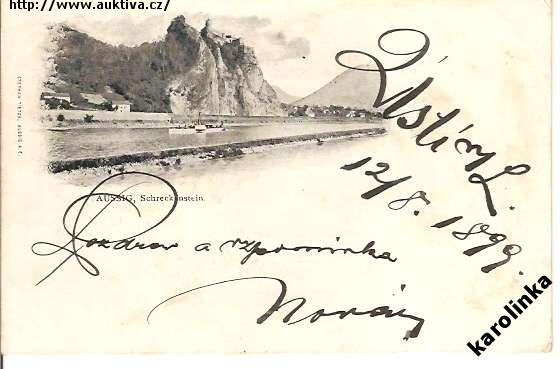 http://www.auktiva.cz/
AUSSIG, Schreckenstein.
Ústí n/L.
12/8. 1899.
Pozdrav a vzpomínka
Novák
karolinka